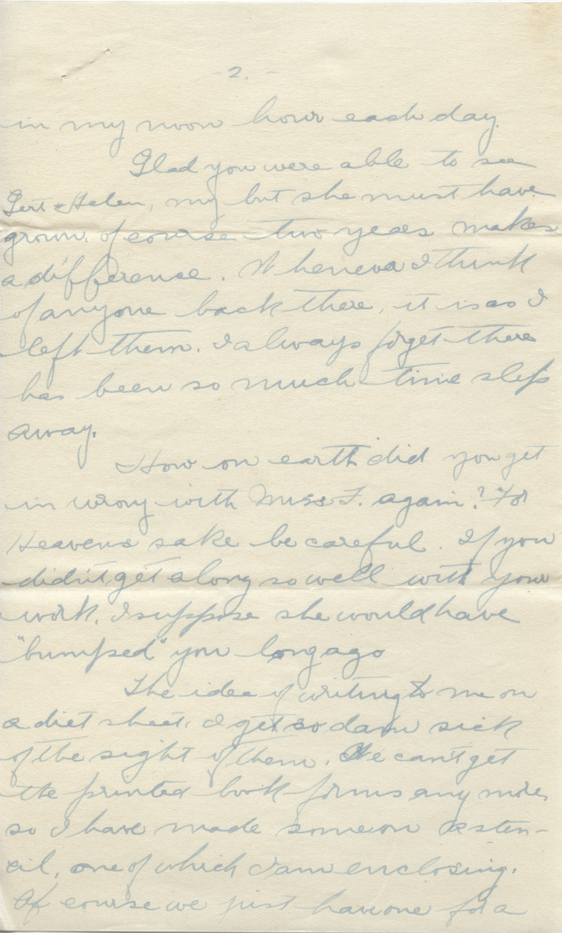 - 2. -
in my noon hour each day.
Glad you were able to see
Gert & Helen, my but she must have
grown, of course two years makes
a difference. Wheneva I think
of anyone back there, it is as I
left them. I always forget there
has been so much time slip
away.
How on earth did you get
in wrong with Miss F. again? For
Heavens sake be careful. If you
didn't get along so well with your
work, I suppose she would have
"bumped" you long ago
The idea of writing to me on
a diet sheet, I get so darn sick
of the sight of them. We can't get
the printed book forms any more,
so I have made some on a sten-
cil, one of which I am enclosing.
Of course we just have one for a